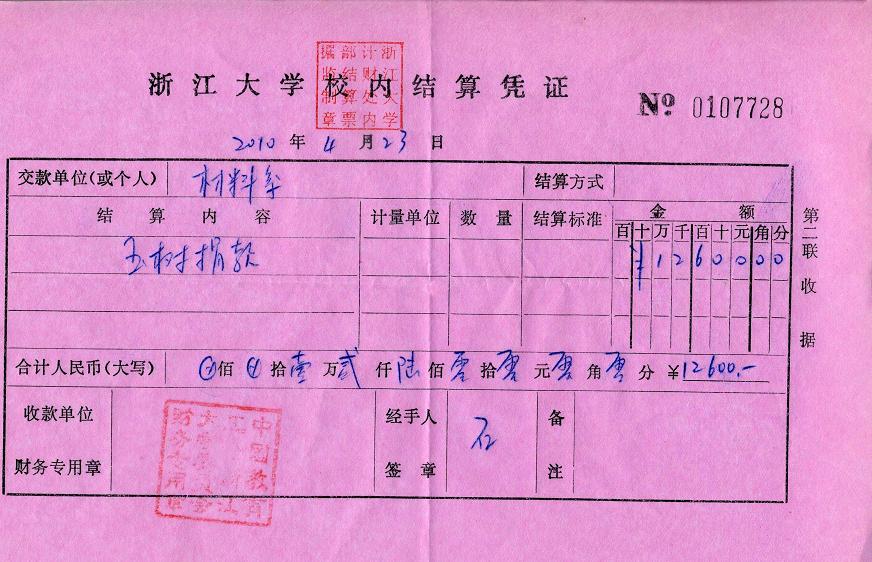 浙江大学校内结算凭证
浙江大学计财处内部结算票据监制章
№ 0107728
2010 年 4 月 23 日
交款单位(或个人) 材料系 结算方式
结算内容 计量单位 数量 结算标准 金额
百十万千百十元角分
玉树捐款 ¥1260000
合计人民币(大写) 佰 拾壹万贰仟陆佰零拾零元零角零分 ¥12600.-
收款单位 经手人 石 备
财务专用章 签章 注
中国教育工会浙江大学委员会财务专用章
第二联 收据